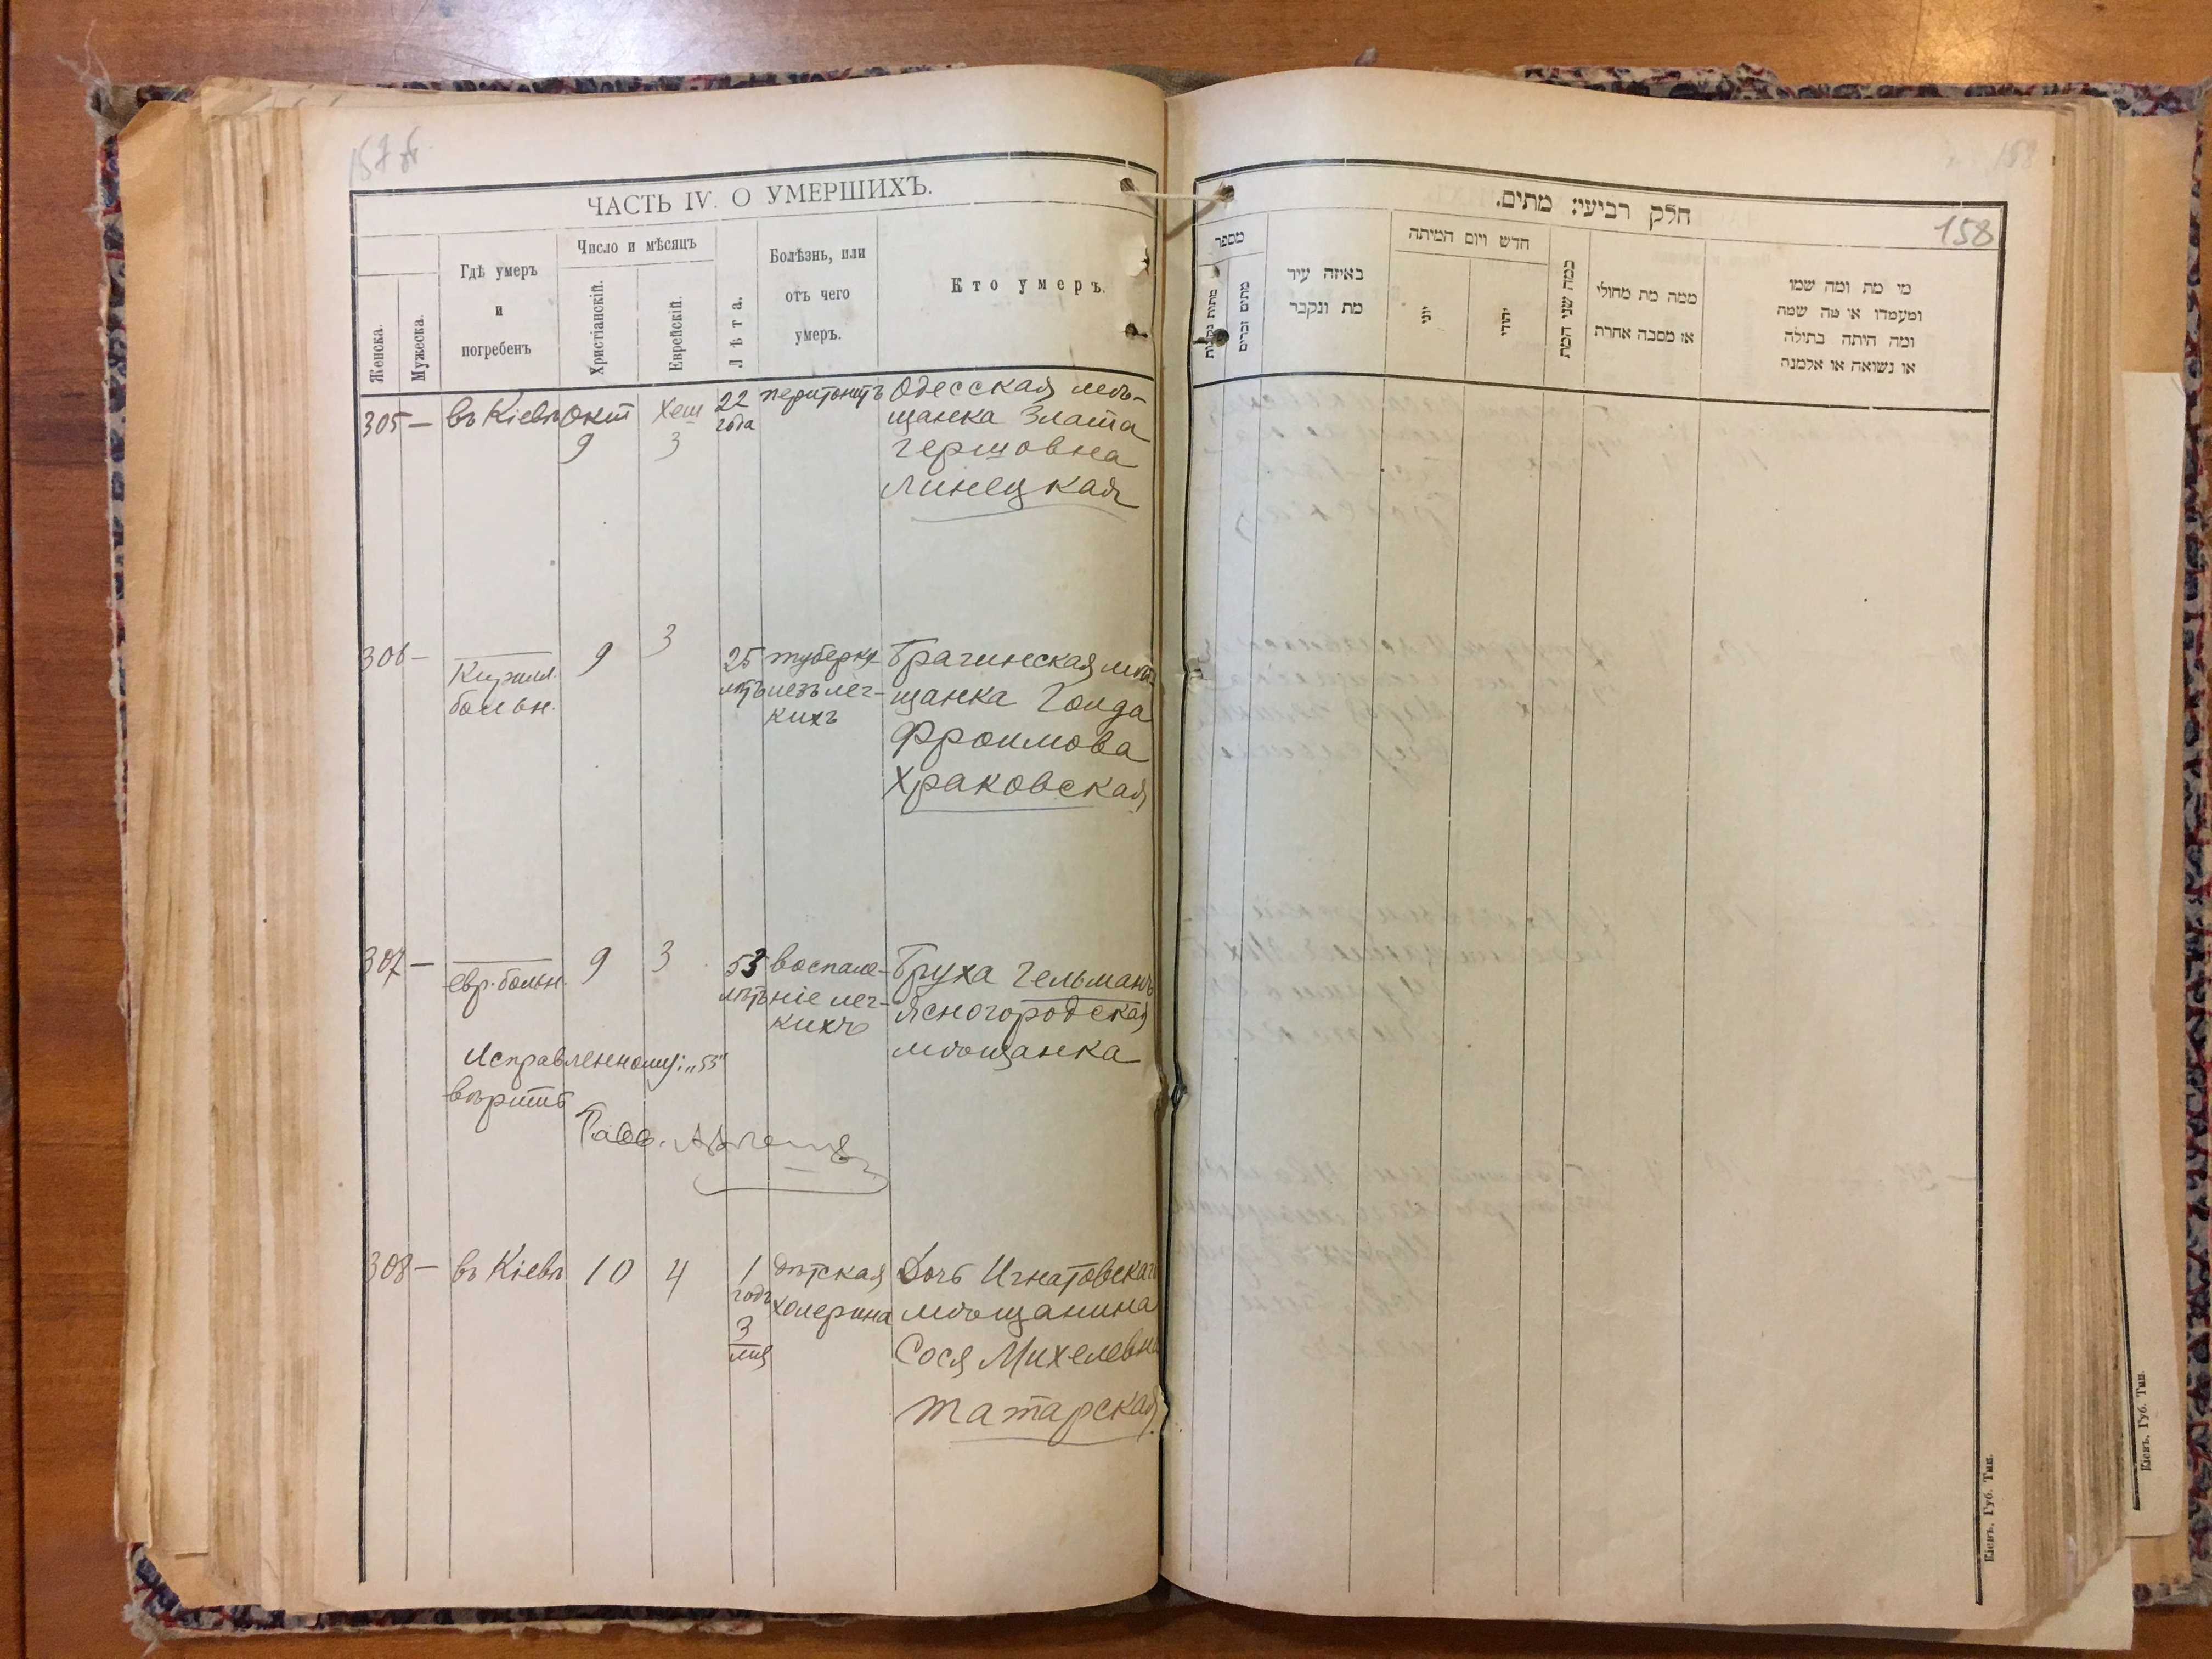 157 об.
ЧАСТЬ IV. О УМЕРШИХЪ.
Женска.
Мужеска.
Гдѣ умеръ
и
погребенъ
Число и мѣсяцъ
Христіанскій.
Еврейскій.
Лѣта.
Болѣзнь, или
отъ чего
умеръ.
Кто умеръ.
305 — въ Кіевѣ Окт 9 Хеш 3 22 года перитонитъ
Одесская мѣ-
щанка Злата
Гершовна
Линецкая
306 —
Кирилл.
больн.
9 3
25 лѣтъ
туберку
лезъ лег-
кихъ
Брагинская мѣ-
щанка Голда
Фроимова
Храковская
307 —
евр. больн.
9 3
53 лѣтъ
воспале-
ніе лег-
кихъ
Бруха Гельманъ
Ясногородская
мѣщанка
Исправленному: „53"
вѣрить
Равв.
308 — въ Кіевѣ 10 4
1 годъ
3
мц
дѣтская
холерина
Дочь Игнатовскаго
мѣщанина
Сося Михелевна
Татарская
158
חלק רביעי: מתים.
158
מספר
מתות נקבות
מתים זכרים
באיזה עיר
מת ונקבר
חדש ויום המיתה
יוני
יהודי
כמה שני המת
ממה מת מחולי
או מסבה אחרת
מי מת ומה שמו
ומעמדו או מה שמה
ומה היתה בתולה
או נשואה או אלמנה
Кіевъ, Губ. Тип.
Кіевъ, Губ. Тип.